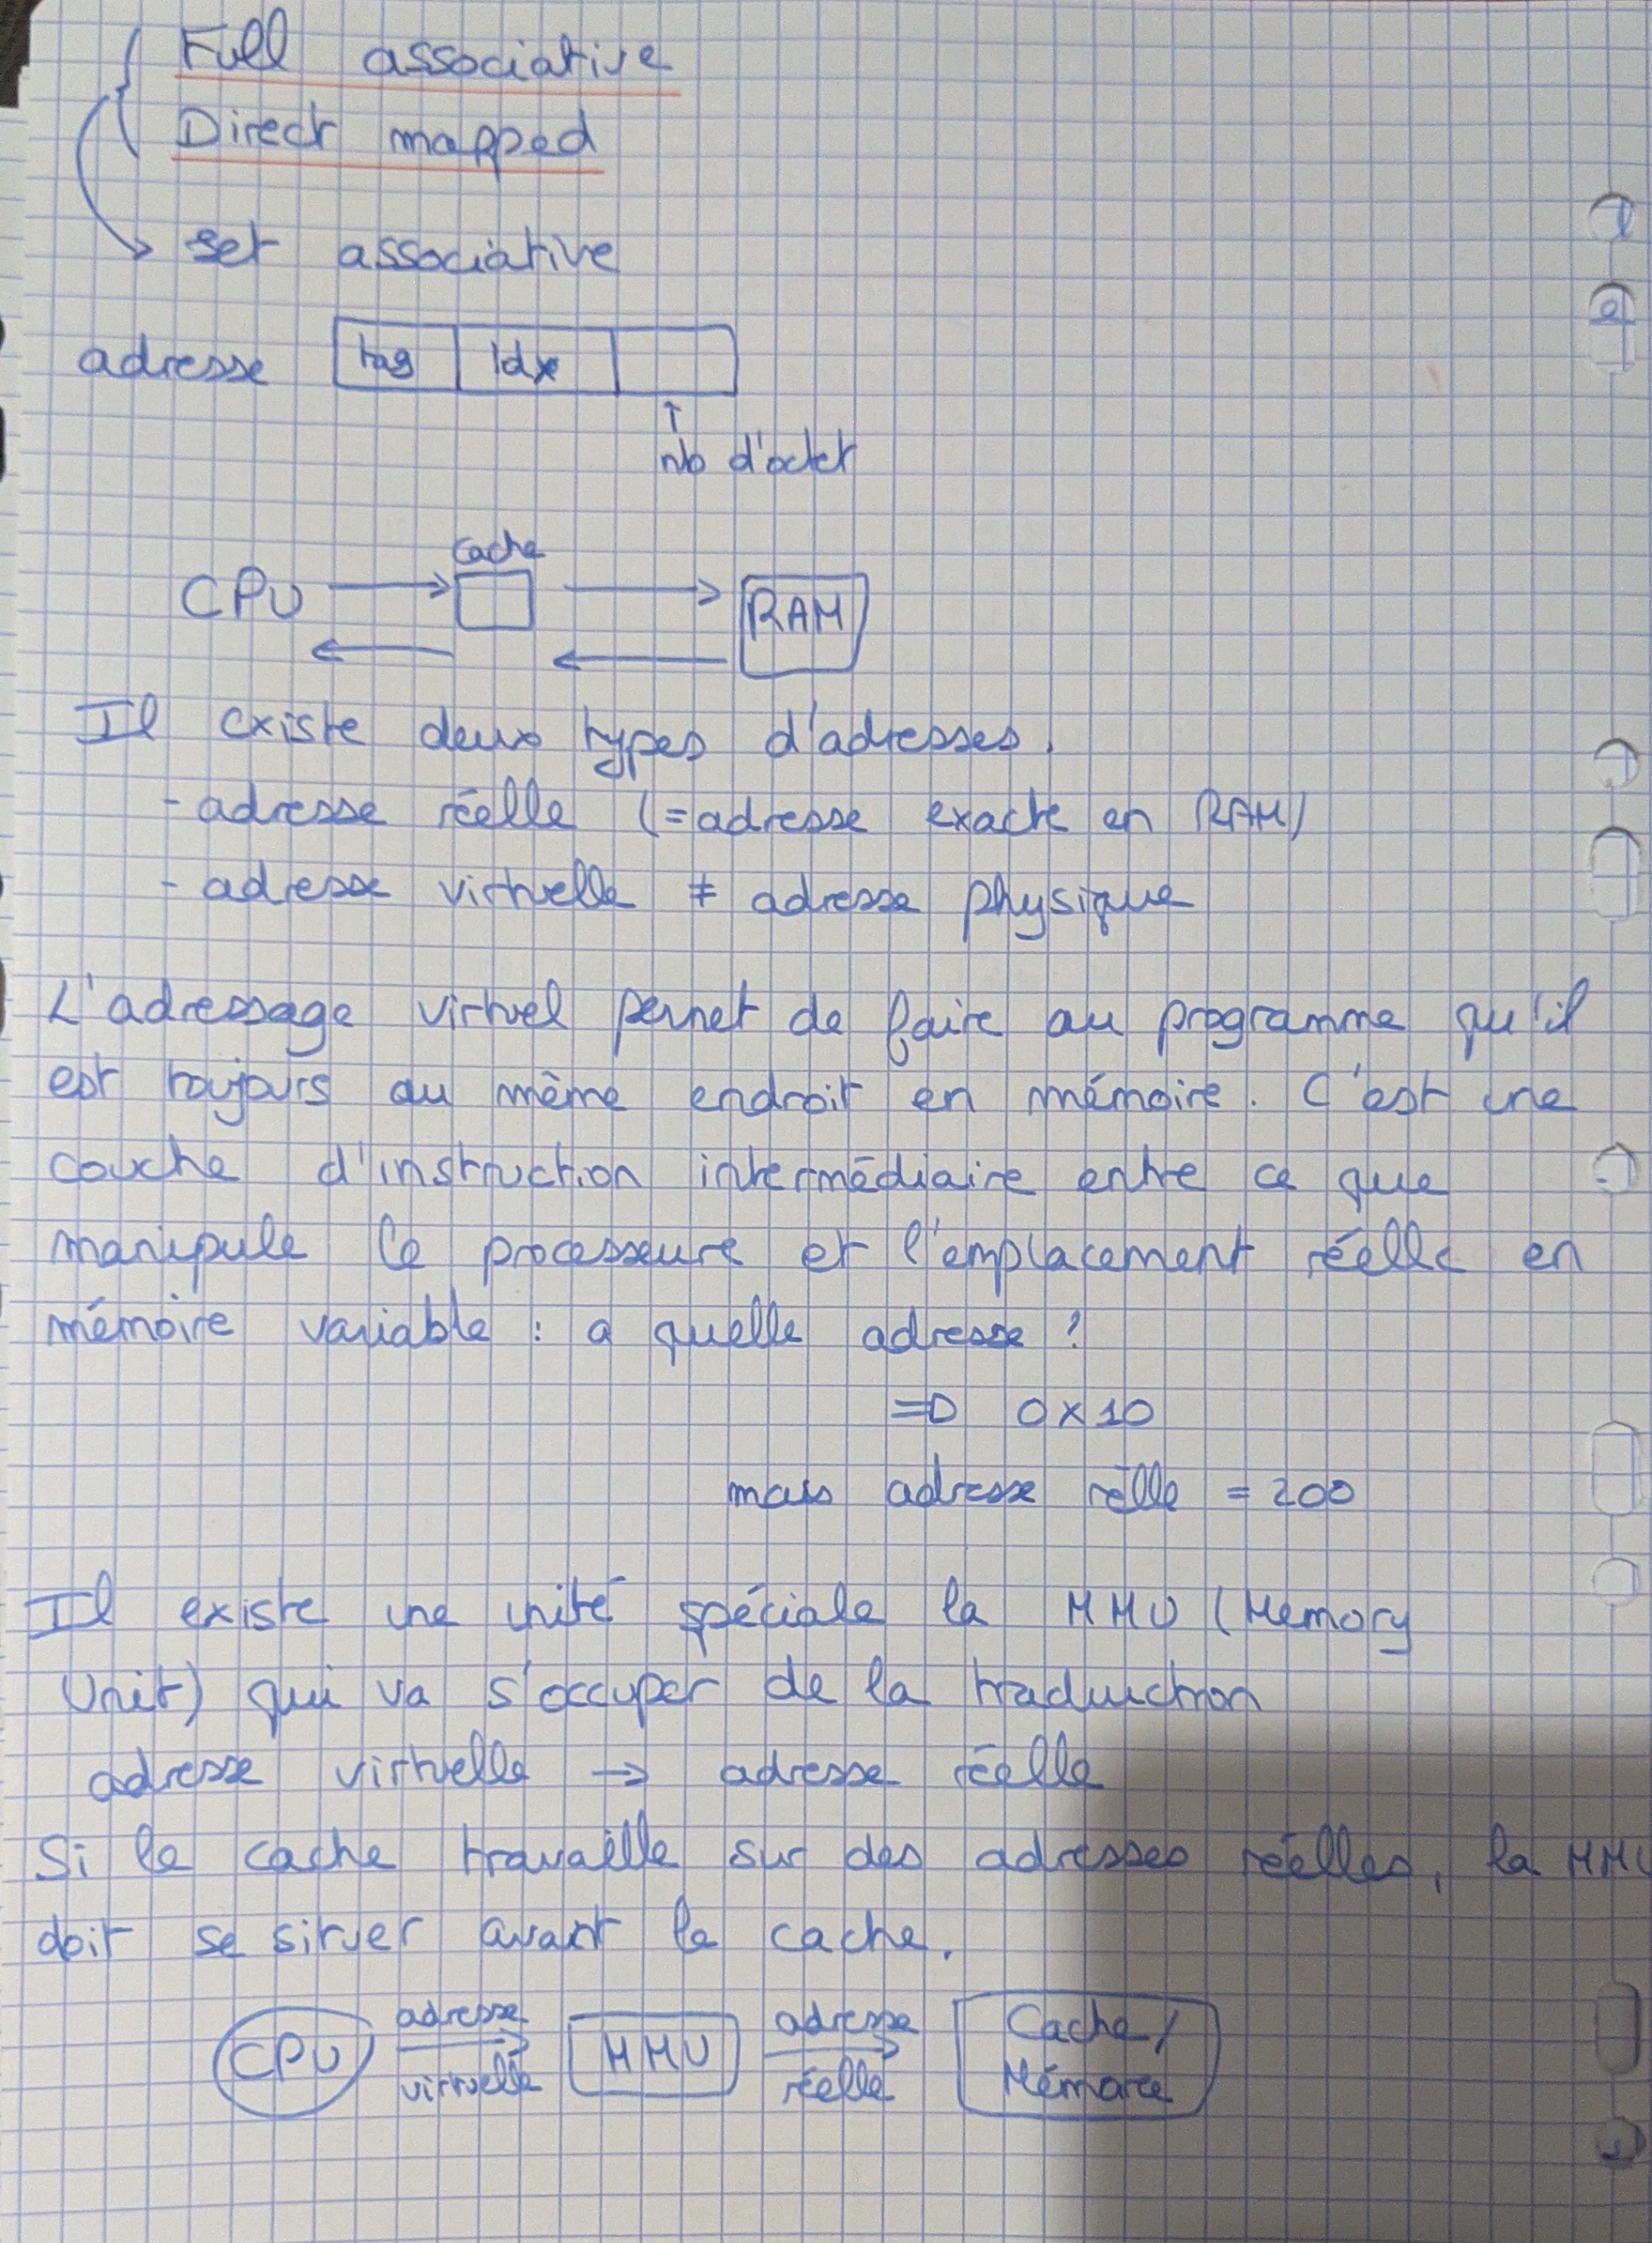 Full associative
Direct mapped
set associative
adresse tag Idx
nb d'octet
cache
CPU RAM
Il existe deux types d'adresses.
- adresse réelle (= adresse exacte en RAM)
- adresse virtuelle ≠ adresse physique
L'adressage virtuel permet de faire au programme qu'il
est toujours au même endroit en mémoire. C'est une
couche d'instruction intermédiaire entre ce que
manipule le processeure et l'emplacement réelle en
mémoire variable : a quelle adresse ?
=D 0x10
mais adresse rélle = 200
Il existe une unité spéciale la MMU (Memory
Unit) qui va s'occuper de la traduiction
adresse virtuelle → adresse réelle
Si le cache travaille sur des adresses réelles, la MMU
doit se situer avant le cache.
CPU adresse virtuelle MMU adresse réelle Cache / Mémoire